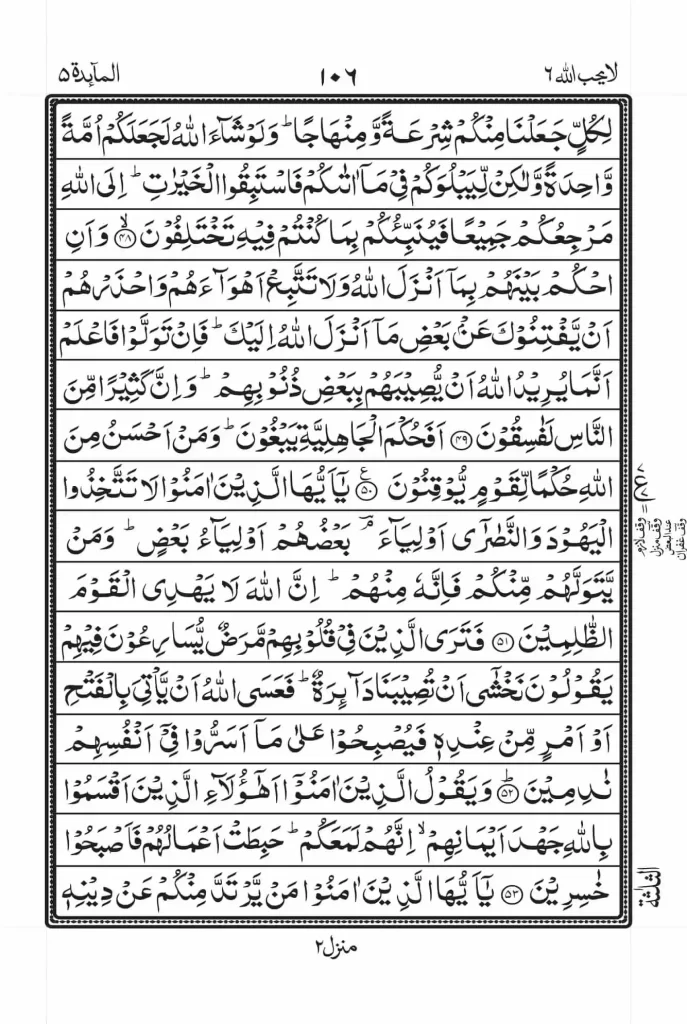 لا يحب الله ٦
١٠٦
المآئدة ٥
لِكُلٍّ جَعَلْنَا مِنْكُمْ شِرْعَةً وَّمِنْهَاجًا ؕ وَلَوْ شَآءَ اللّٰهُ لَجَعَلَكُمْ اُمَّةً
وَّاحِدَةً وَّلٰكِنْ لِّيَبْلُوَكُمْ فِىْ مَاۤ اٰتٰىكُمْ فَاسْتَبِقُوا الْخَيْرٰتِ ؕ اِلَى اللّٰهِ
مَرْجِعُكُمْ جَمِيْعًا فَيُنَبِّئُكُمْ بِمَا كُنْتُمْ فِيْهِ تَخْتَلِفُوْنَ ۙ‏﴿۴۸﴾ وَاَنِ
احْكُمْ بَيْنَهُمْ بِمَاۤ اَنْزَلَ اللّٰهُ وَلَا تَتَّبِعْ اَهْوَآءَهُمْ وَاحْذَرْهُمْ
اَنْ يَّفْتِنُوْكَ عَنْۢ بَعْضِ مَاۤ اَنْزَلَ اللّٰهُ اِلَيْكَ ؕ فَاِنْ تَوَلَّوْا فَاعْلَمْ
اَنَّمَا يُرِيْدُ اللّٰهُ اَنْ يُّصِيْبَهُمْ بِبَعْضِ ذُنُوْبِهِمْ ؕ وَاِنَّ كَثِيْرًا مِّنَ
النَّاسِ لَفٰسِقُوْنَ ﴿۴۹﴾ اَفَحُكْمَ الْجَاهِلِيَّةِ يَبْغُوْنَ ؕ وَمَنْ اَحْسَنُ مِنَ
اللّٰهِ حُكْمًا لِّقَوْمٍ يُّوْقِنُوْنَ ۧ ﴿۵۰﴾ يٰۤاَيُّهَا الَّذِيْنَ اٰمَنُوْا لَا تَتَّخِذُوا
الْيَهُوْدَ وَالنَّصٰرٰۤى اَوْلِيَآءَ ؔۘ بَعْضُهُمْ اَوْلِيَآءُ بَعْضٍ ؕ وَمَنْ
يَّتَوَلَّهُمْ مِّنْكُمْ فَاِنَّهٗ مِنْهُمْ ؕ اِنَّ اللّٰهَ لَا يَهْدِى الْقَوْمَ
الظّٰلِمِيْنَ ﴿۵۱﴾ فَتَرَى الَّذِيْنَ فِىْ قُلُوْبِهِمْ مَّرَضٌ يُّسَارِعُوْنَ فِيْهِمْ
يَقُوْلُوْنَ نَخْشٰٓى اَنْ تُصِيْبَنَا دَآئِرَةٌ ؕ فَعَسَى اللّٰهُ اَنْ يَّاْتِىَ بِالْفَتْحِ
اَوْ اَمْرٍ مِّنْ عِنْدِهٖ فَيُصْبِحُوْا عَلٰى مَاۤ اَسَرُّوْا فِىْۤ اَنْفُسِهِمْ
نٰدِمِيْنَ ؕ ﴿۵۲﴾ وَيَقُوْلُ الَّذِيْنَ اٰمَنُوْۤا اَهٰٓؤُلَآءِ الَّذِيْنَ اَقْسَمُوْا
بِاللّٰهِ جَهْدَ اَيْمَانِهِمْ ۙ اِنَّهُمْ لَمَعَكُمْ ؕ حَبِطَتْ اَعْمَالُهُمْ فَاَصْبَحُوْا
خٰسِرِيْنَ ﴿۵۳﴾ يٰۤاَيُّهَا الَّذِيْنَ اٰمَنُوْا مَنْ يَّرْتَدَّ مِنْكُمْ عَنْ دِيْنِهٖ
وقف لازم
وقف منزل
وقف غفران
الثلثة
منزل ٢